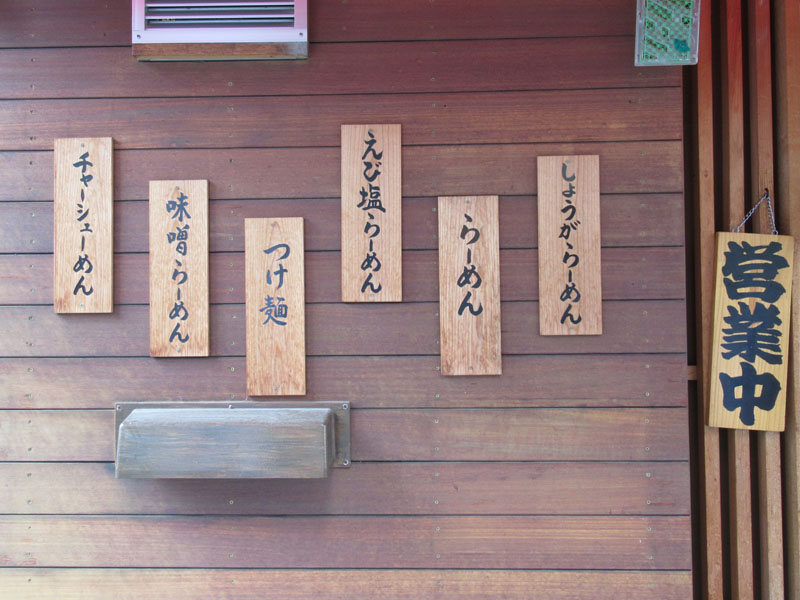 営業中
しょうがらーめん
らーめん
えび塩らーめん
つけ麺
味噌らーめん
チャーシューめん